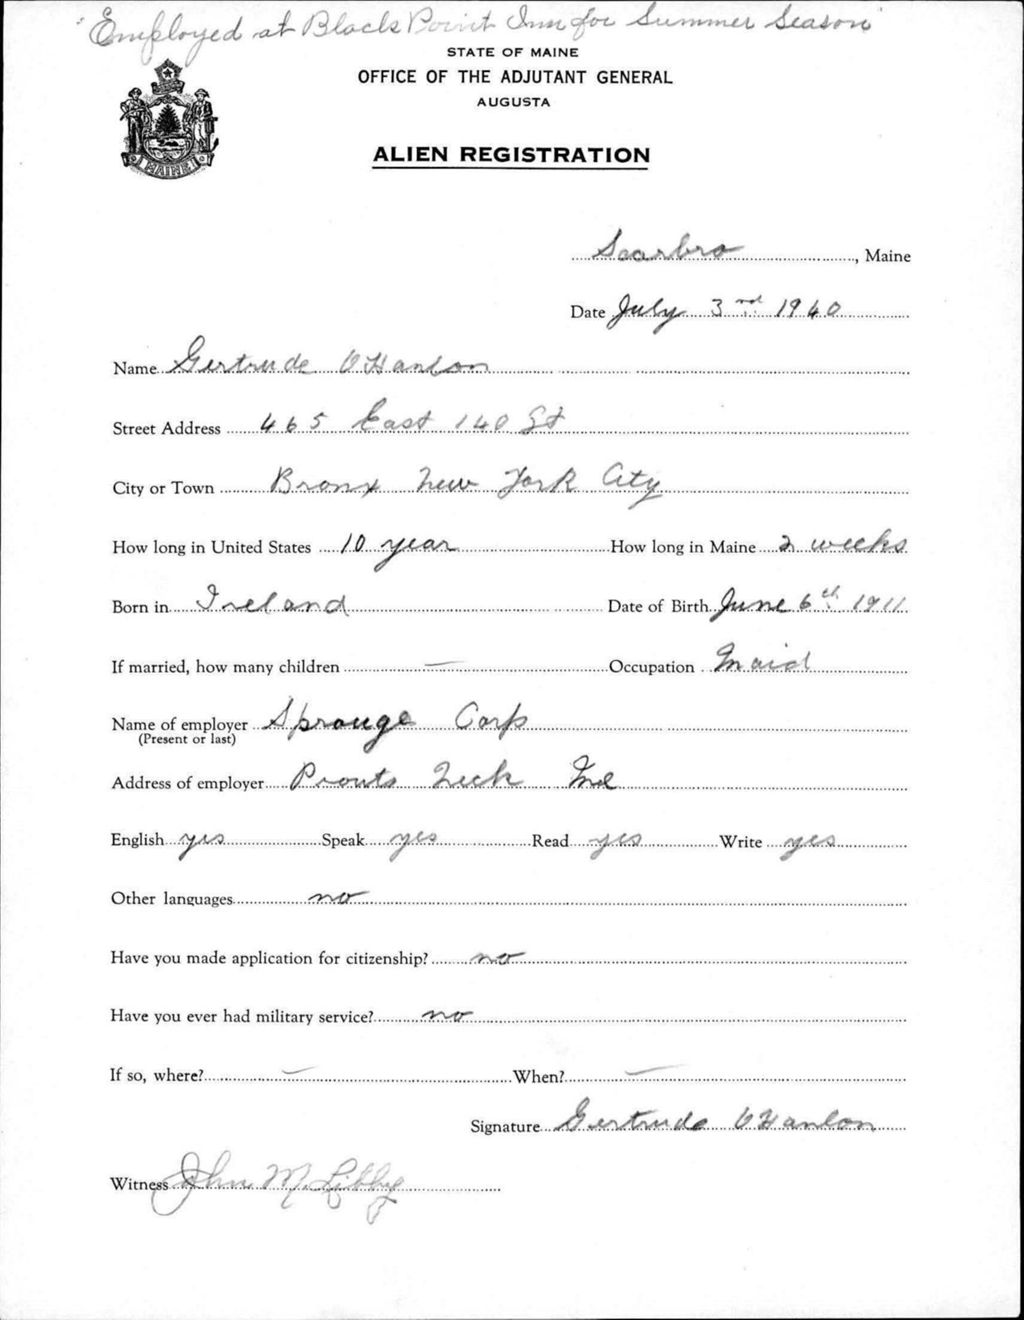 Employed at Black Point Inn for Summer Season
STATE OF MAINE
OFFICE OF THE ADJUTANT GENERAL
AUGUSTA
MAINE
ALIEN REGISTRATION
Scarbro, Maine
Date July 3rd 1940
Name Gertrude O'Hanlon
Street Address 465 East 140 St
City or Town Bronx New York City
How long in United States 10 year How long in Maine 2 weeks
Born in Ireland Date of Birth June 6th 1911
If married, how many children — Occupation Maid
Name of employer Sprouge Corp
(Present or last)
Address of employer Prouts Neck Me
English yes Speak yes Read yes Write yes
Other languages no
Have you made application for citizenship? no
Have you ever had military service? no
If so, where? — When? —
Signature Gertrude O'Hanlon
Witness John M. Libby